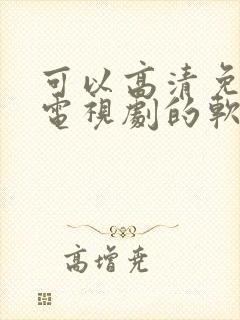 可以高清免
電視劇的軟
高增堯